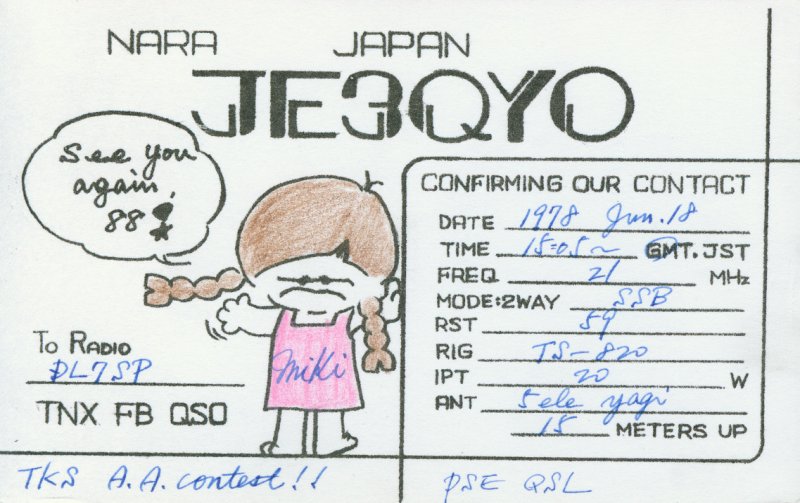 NARA JAPAN
JE3QYO
See you
again,
88!
CONFIRMING OUR CONTACT
DATE 1978 Jun. 18
TIME 15:05~ GMT. JST
FREQ 21 MHz
MODE:2WAY SSB
RST 59
RIG TS-820
IPT 20 W
ANT 5ele yagi
15 METERS UP
To RADIO
DL7SP
TNX FB QSO
miki
TKS A.A. contest!!
PSE QSL